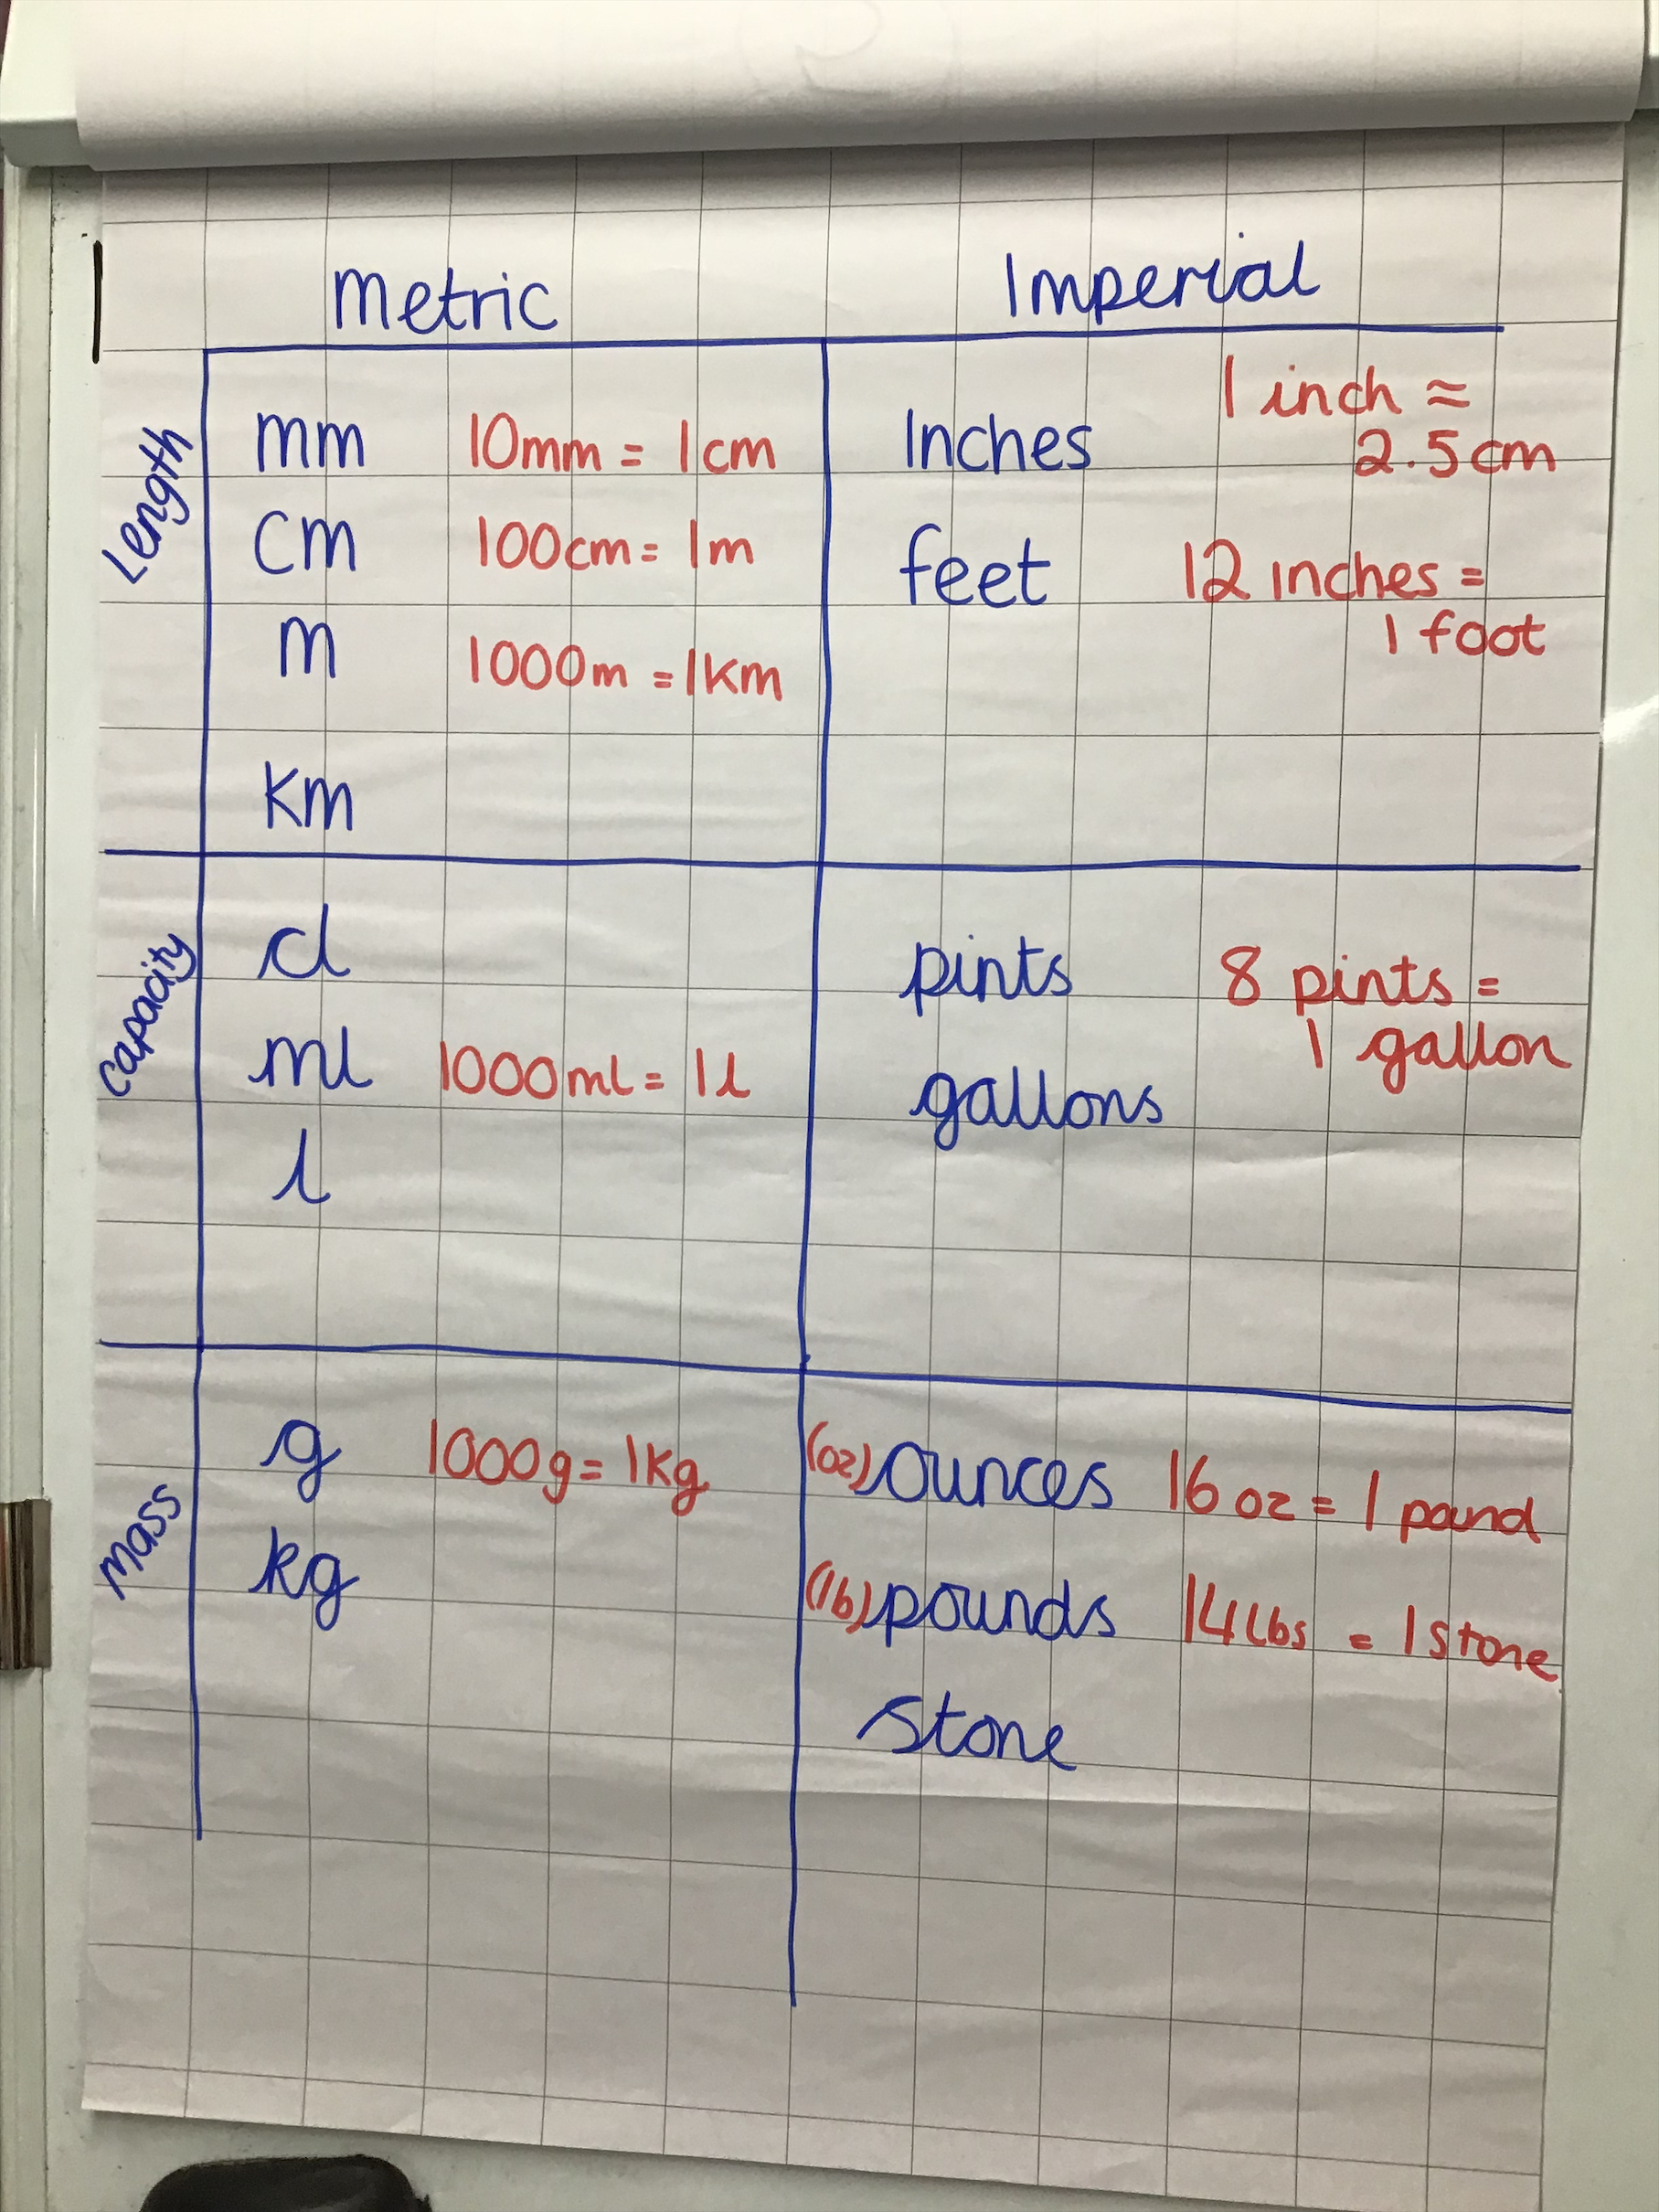 Metric Imperial
Length
mm 10mm = 1cm
cm 100cm = 1m
m 1000m = 1km
km
Inches 1 inch ≈
2.5cm
feet 12 inches =
1 foot
Capacity
cl
ml 1000ml = 1l
l
pints 8 pints =
1 gallon
gallons
Mass
g 1000g = 1kg
kg
(oz) ounces 16 oz = 1 pound
(lb) pounds 14 lbs = 1 stone
stone